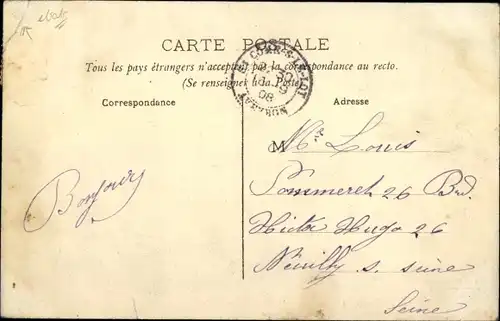 CARTE POSTALE
Tous les pays étrangers n'acceptent pas la correspondance au recto.
(Se renseigner à la Poste)
Correspondance
Adresse
Bonjour
M Louis
Pommeret 26 Bd.
Victor Hugo 26
Neuilly s. seine
Seine